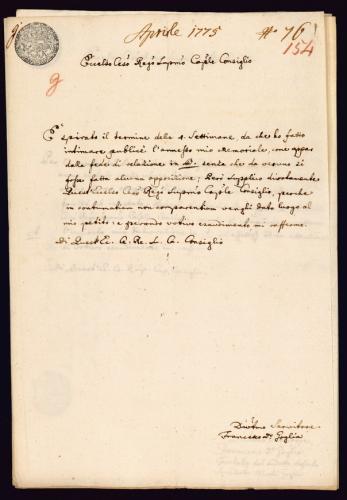 Aprile 1775
No 76
154
g
Eccelso Ces.o Reg.o Supmo Cap.le Consiglio
È spirato il termine delle 4. Settimane da che ho fatto
intimare publice l'annesso mio Memoriale, come appar
dalla fede di relazione in senza che da veruno si
fosse fatta alcuna opposizione; Però Supplico divotamente
Quest'Eccelso Ces.o Reg.o Supmo Cap.le Consiglio, perche
in contumatiam non comparentium vengli dato luogo al
mio petito: e sperando votivo esaudimento mi raffermo.
Di Quest'Ec. C. Re. S. C. Consiglio
Divotmo Servitore
Francesco Goglia